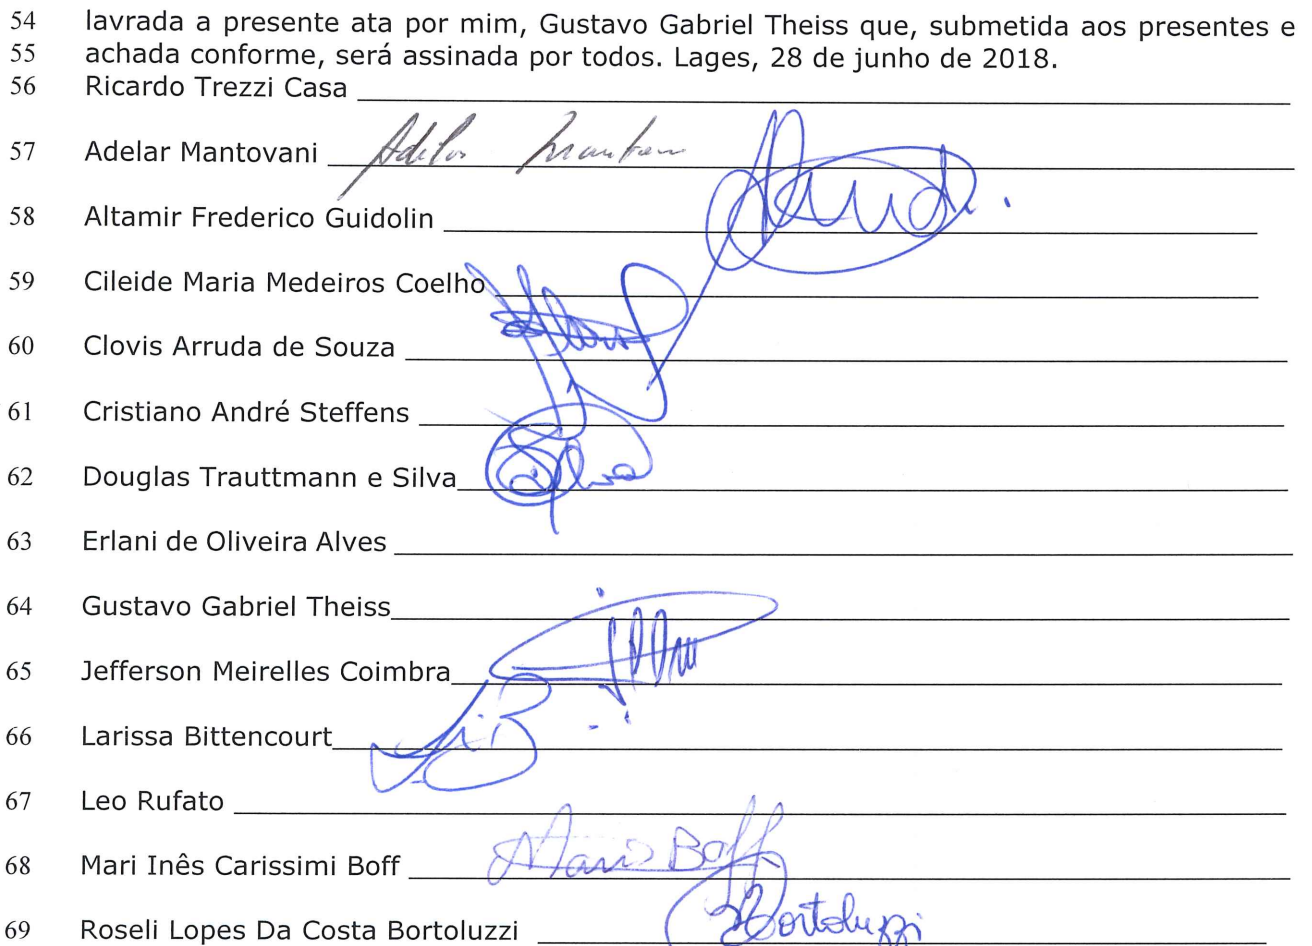 54 lavrada a presente ata por mim, Gustavo Gabriel Theiss que, submetida aos presentes e
55 achada conforme, será assinada por todos. Lages, 28 de junho de 2018.
56 Ricardo Trezzi Casa
57 Adelar Mantovani
58 Altamir Frederico Guidolin
59 Cileide Maria Medeiros Coelho
60 Clovis Arruda de Souza
61 Cristiano André Steffens
62 Douglas Trauttmann e Silva
63 Erlani de Oliveira Alves
64 Gustavo Gabriel Theiss
65 Jefferson Meirelles Coimbra
66 Larissa Bittencourt
67 Leo Rufato
68 Mari Inês Carissimi Boff Boff
69 Roseli Lopes Da Costa Bortoluzzi Bortoluzzi